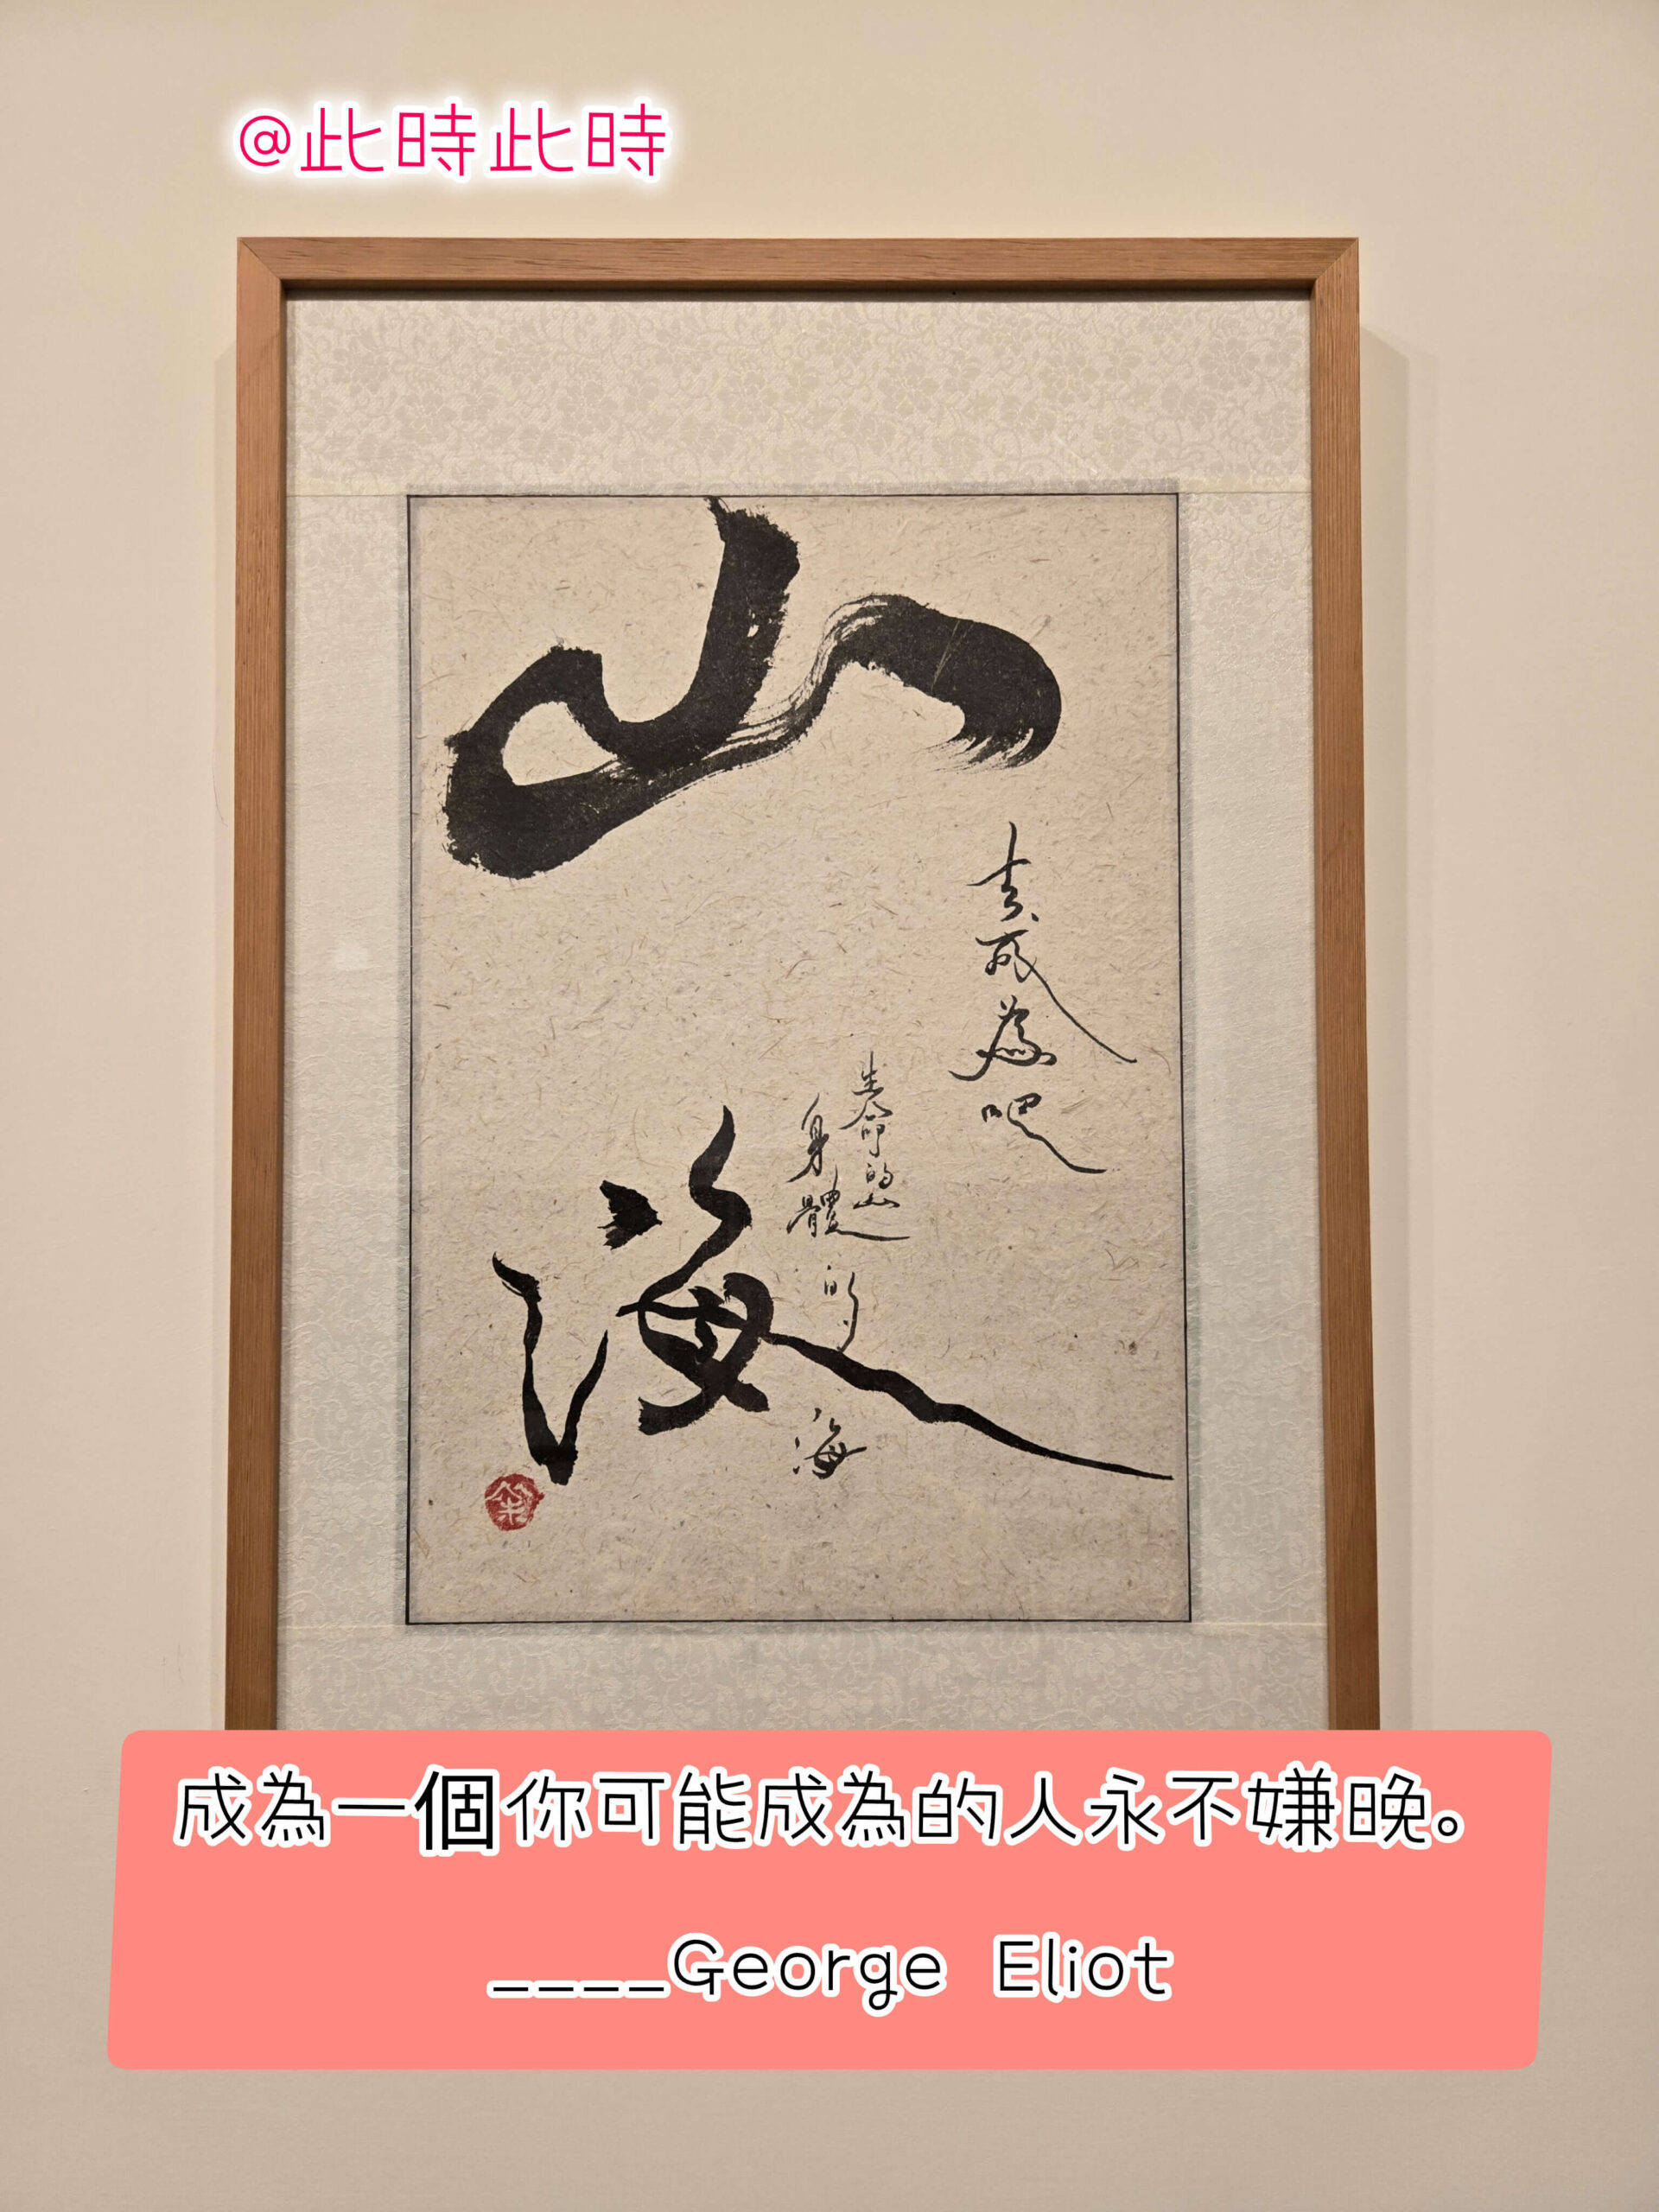 @此時此時
山
去成為吧
生命的山
身體的
海
海
成為一個你可能成為的人永不嫌晚。
____George Eliot